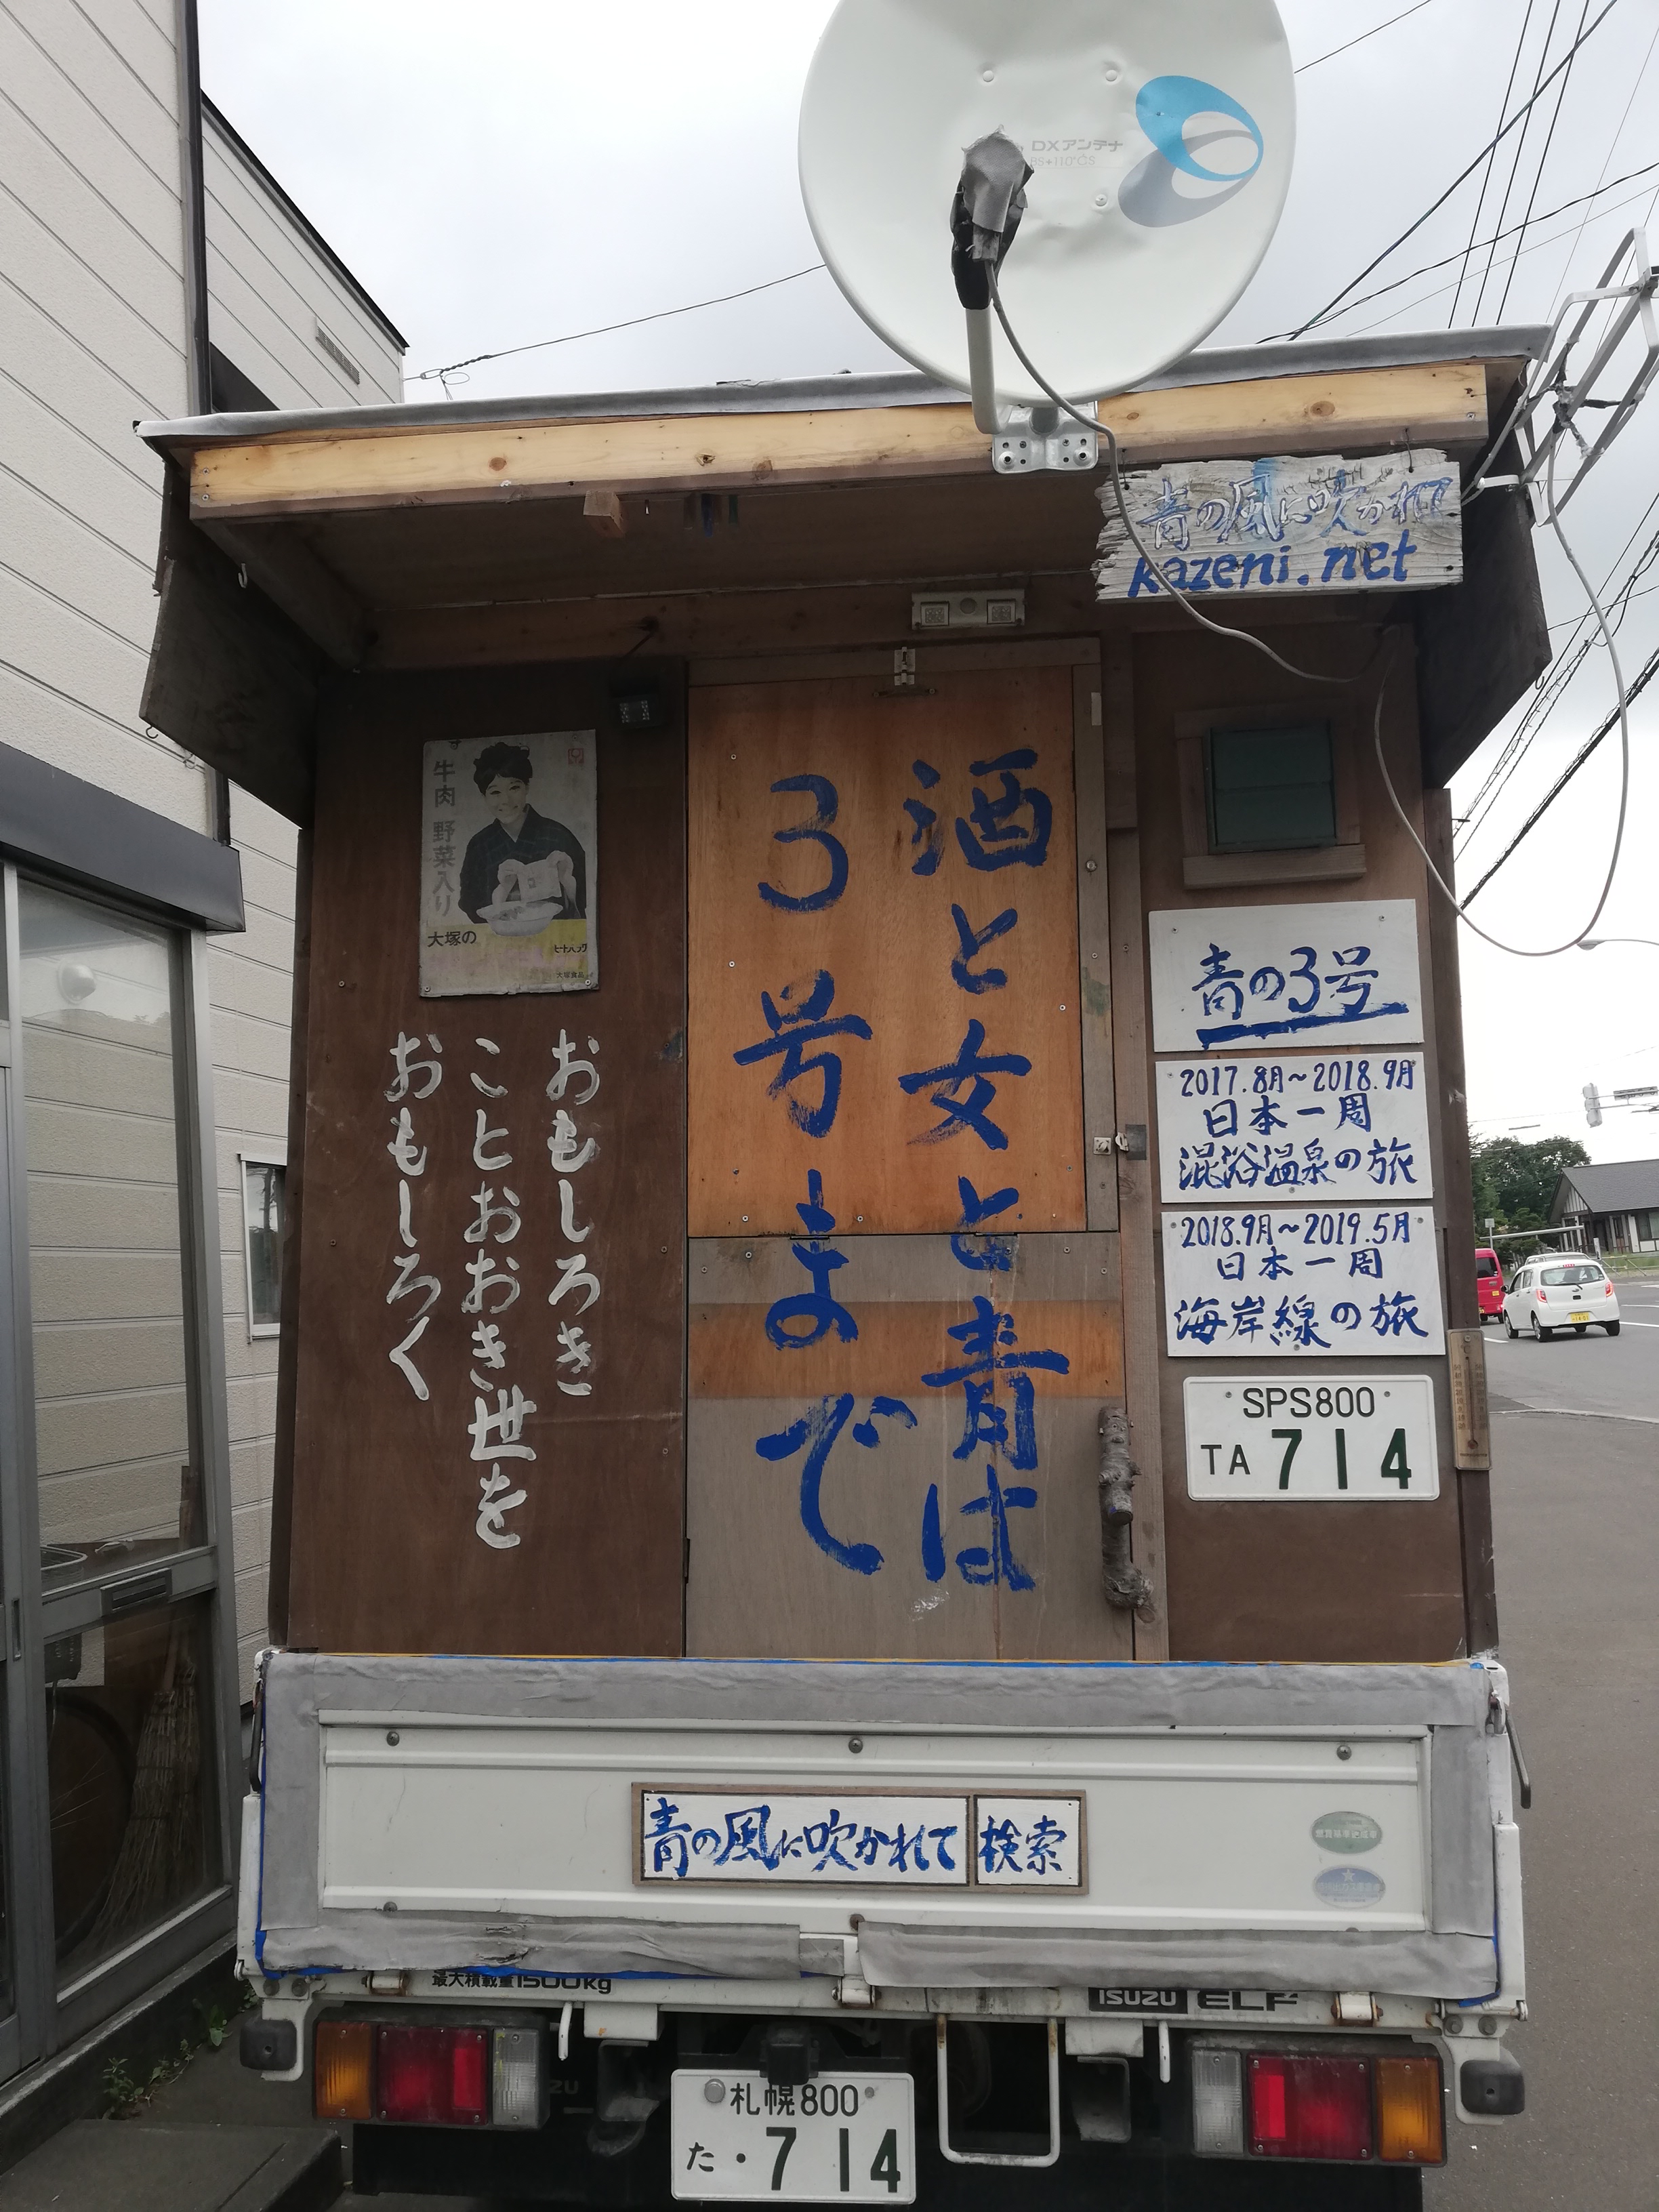 DXアンテナ
BS・110°CS
青の風に吹かれて
kazeni.net
牛肉 野菜入り
大塚の
大塚食品
酒と女と青は
3号まで
おもしろき
ことおおき世を
おもしろく
青の3号
2017.8月~2018.9月
日本一周
混浴温泉の旅
2018.9月~2019.5月
日本一周
海岸線の旅
SPS800
TA 714
青の風に吹かれて 検索
最大積載量1500kg
ISUZU ELF
札幌800
た・714